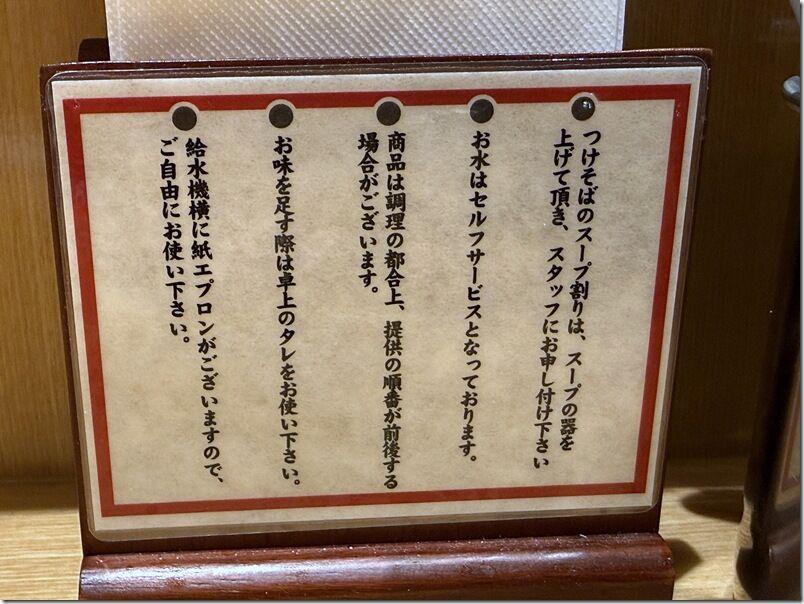 ●つけそばのスープ割りは、スープの器を
上げて頂き、スタッフにお申し付け下さい
●お水はセルフサービスとなっております。
●商品は調理の都合上、提供の順番が前後する
場合がございます。
●お味を足す際は卓上のタレをお使い下さい。
●給水機横に紙エプロンがございますので、
ご自由にお使い下さい。